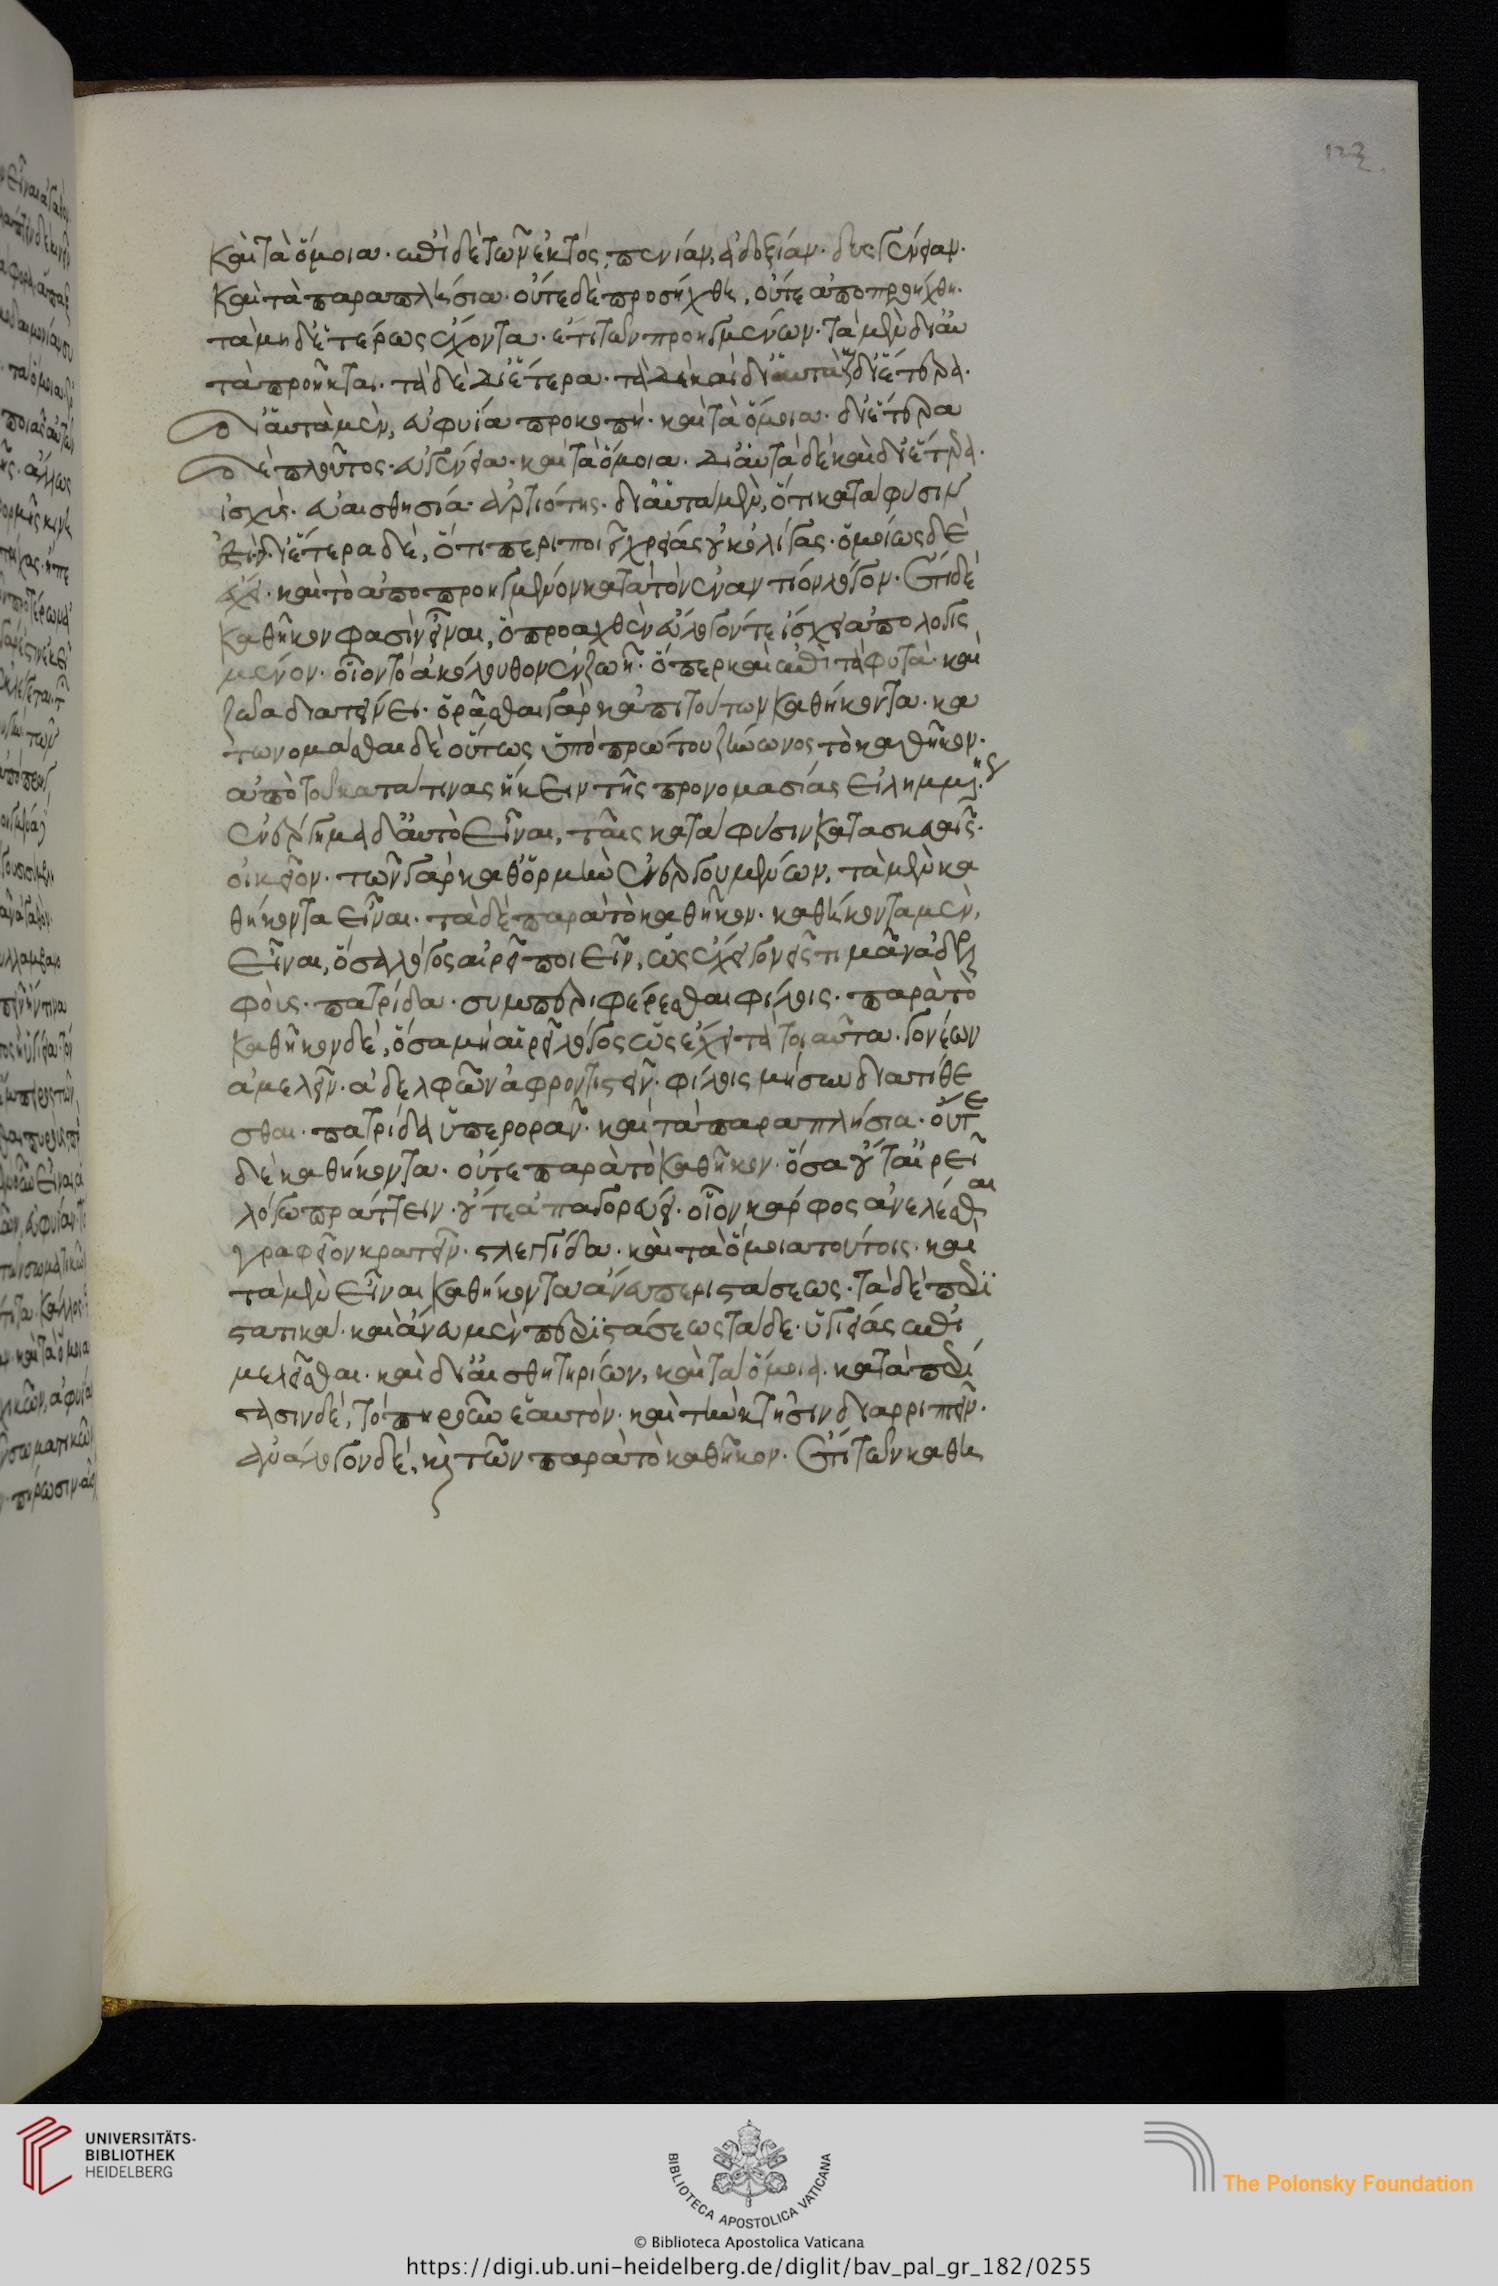 καὶ τὰ ὅμοια· ἐπὶ δὲ τῶν ἐκτὸς, πενίαν, ἀδοξίαν· δυσγένειαν·
καὶ τὰ παραπλήσια· οὔτε δὲ προσήχθη, οὔτε ἀποπροηχθη·
τὰ μηδετέρως ἔχοντα· ἔτι τῶν προηγμένων· τὰ μὲν δι' αυ
τὰ προῆκται· τὰ δὲ δι' ἕτερα· τὰ δὲ καὶ δι' αυτὰ κ δι' ἕτερα·
Δι' αυτὰ μὲν, εὐφυΐα προκοπή· καὶ τὰ ὅμοια· δι' ἕτερα
Δὲ πλοῦτος· εὐγένεια· καὶ τὰ ὅμοια· δι' αυτὰ δὲ καὶ δι' ἕτερα·
ἰσχύς· εὐαισθησία· ἀρτιότης· δι' αυτὰ μὲν, ὅτι κατὰ φύσιν
ἐστίν· δι' ἕτερα δὲ, ὅτι περιποιεῖ χρείας οὐκ ὀλίγας· ὁμοίως δὲ
ἔχει· καὶ τὸ ἀποπροηγμένον κατὰ τὸν ἐναντίον λόγον· Ἔτι δὲ
καθῆκον φασὶν εἶναι, ὃ προαχθὲν εὔλογόν τε ἰσχει ἀπολογις
μένον· οἷον τὸ ἀκόλουθον ἐν ζωῇ· ὅπερ καὶ ἐπὶ τὰ φυτὰ· καὶ
ζῶα διατείνει· ὁρᾶσθαι γὰρ κἀπὶ τούτων καθήκοντα· κα
τωνομάσθαι δὲ οὕτως ὑπὸ πρώτου ζήνωνος τὸ καθῆκον·
ἀπὸ τοῦ κατά τινας ἥκειν τῆς προνομασίας εἰλημμένης
ἐνέργημα δ' αυτὸ εἶναι, ταῖς κατὰ φύσιν κατασκευαῖς·
οἰκεῖον· τῶν γὰρ καθ' ὁρμὴν ἐνεργουμένων, τὰ μὲν κα
θήκοντα εἶναι· τὰ δὲ παρὰ τὸ καθῆκον· καθήκοντα μὲν,
εἶναι, ὅσα λόγος αἱρεῖ ποιεῖν, ὡς ἔχει γονεῖς τιμᾶν ἀδελ
φοὺς· πατρίδα· συμπεριφέρεσθαι φίλοις· παρὰ τὸ
καθῆκον δὲ, ὅσα μὴ αἱρεῖ λόγος ὡς ἔχει τὰ τοιαῦτα· γονέων
ἀμελεῖν· ἀδελφῶν ἀφροντιστεῖν· φίλοις μὴ συνδιατίθε
σθαι· πατρίδα ὑπερορᾶν· καὶ τὰ παραπλήσια· οὔτε
δὲ καθήκοντα· οὔτε παρὰ τὸ καθῆκον· ὅσα οὔτ' αἱρεῖ
λόγω πράττειν· οὔτε ἀπαγορεύει· οἷον κάρφος ἀνελέσθαι
γραφεῖον κρατεῖν· στλεγγίδα· καὶ τὰ ὅμοια τούτοις· καὶ
τὰ μὲν εἶναι καθήκοντα ἄνευ περιστάσεως· τὰ δὲ περι
στατικά· καὶ ἄνευ μὲν περιστάσεως τάδε· ὑγιείας ἐπι
μελεῖσθαι· καὶ δι' αισθητηρίων, καὶ τὰ ὅμοια· κατὰ περί
στασιν δὲ, τὸ πηροῦν ἑαυτόν· καὶ τὴν κτῆσιν διαρριπτεῖν·
ἀνάλογον δὲ, κ τῶν παρὰ τὸ καθῆκον· Ἔτι τῶν καθη
UNIVERSITÄTS-
BIBLIOTHEK
HEIDELBERG
BIBLIOTECA APOSTOLICA VATICANA
The Polonsky Foundation
© Biblioteca Apostolica Vaticana
https://digi.ub.uni-heidelberg.de/diglit/bav_pal_gr_182/0255